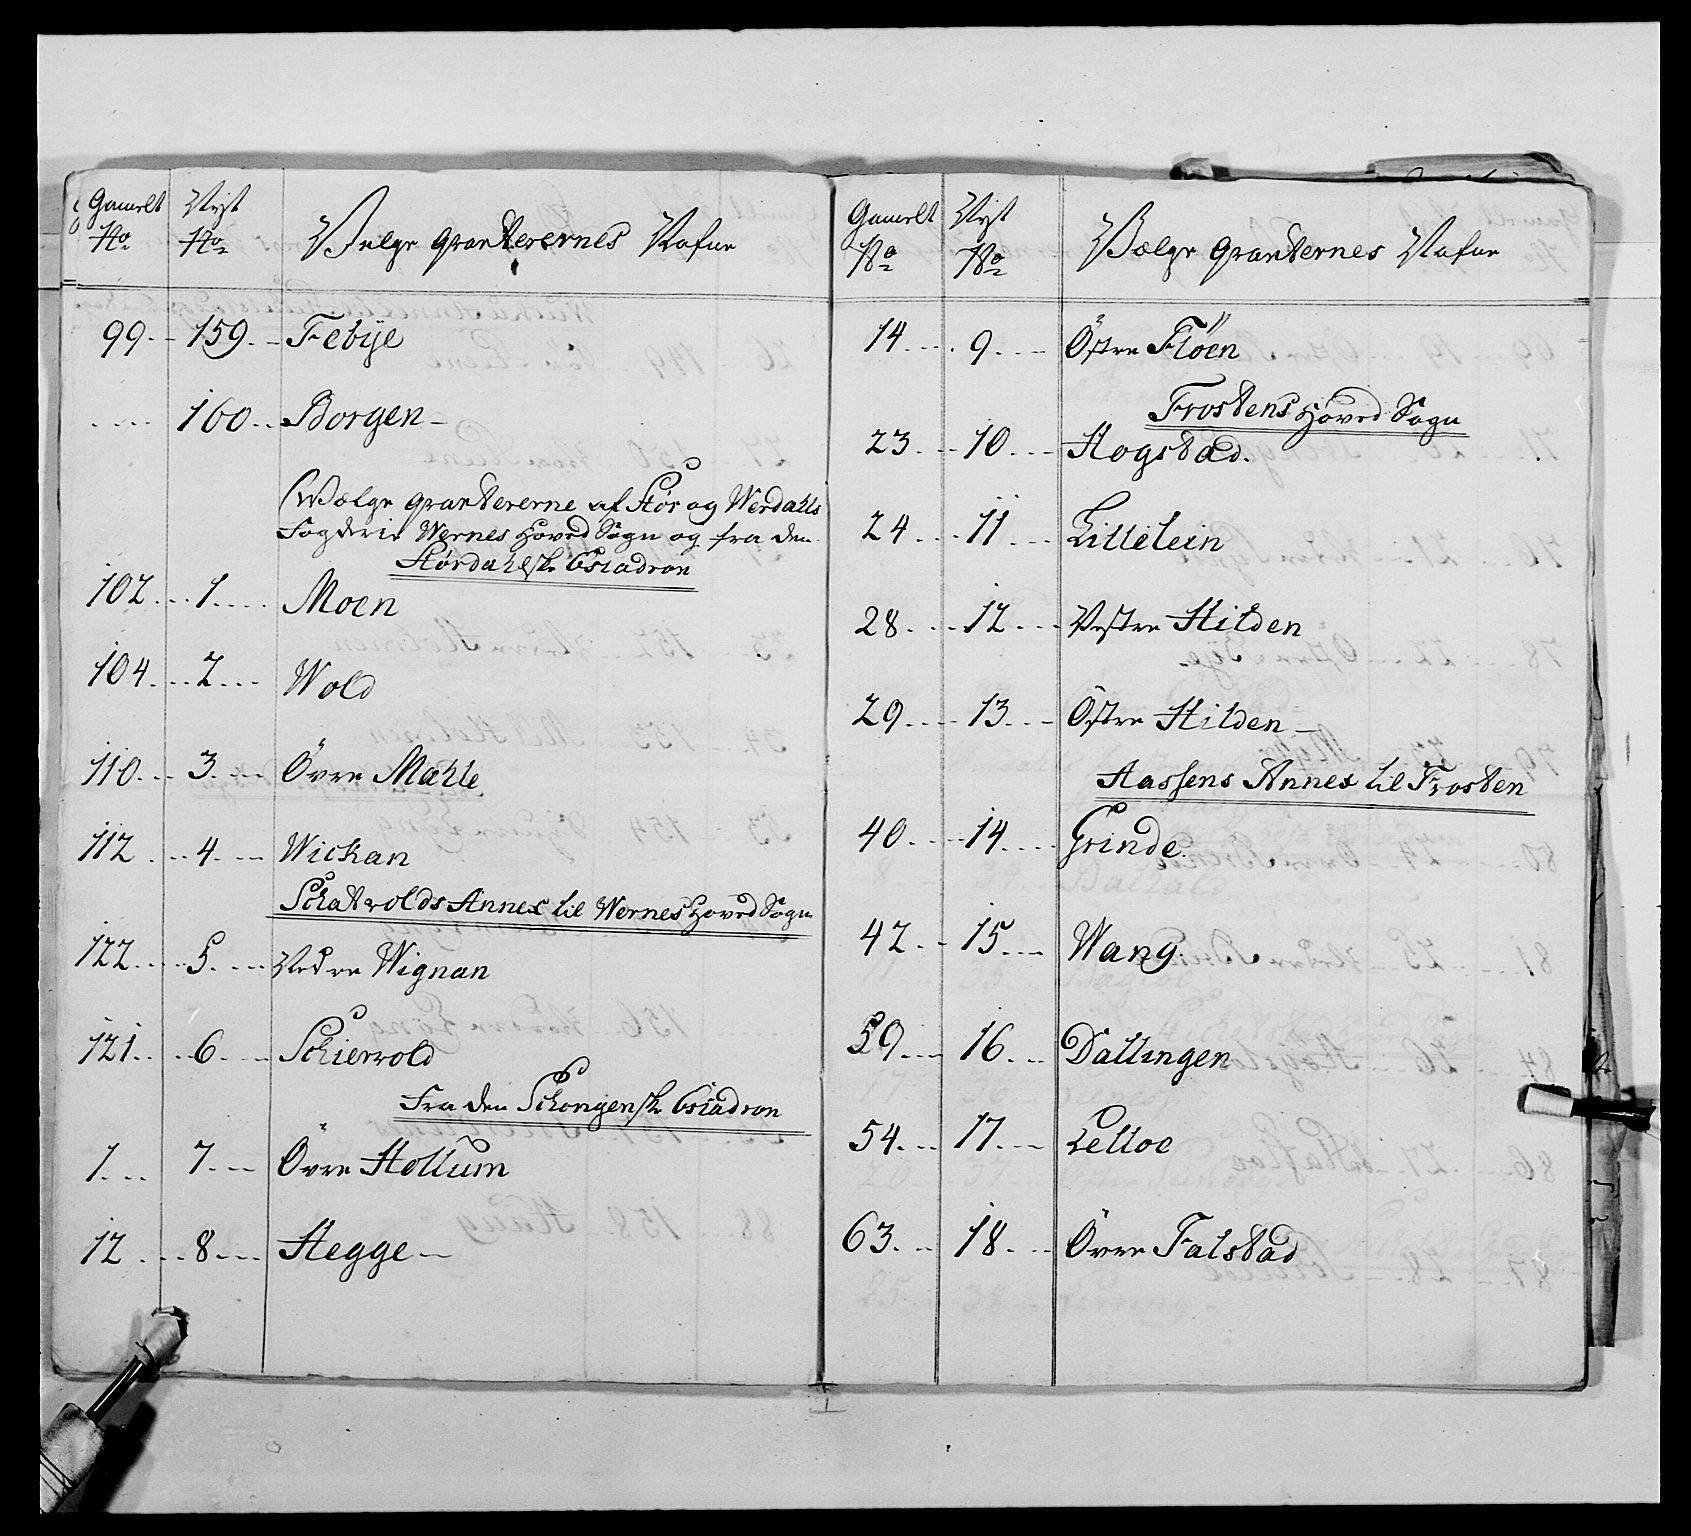 Gamelt Nyt
No No Velge qvarterernes Nafne
99 159 Febÿe
160 Borgen
Welge qvartererne af Stør og Werdahls
Fogderie Wernes Hoved Sogn og fra den
Størdahlske Esqadron
102 1 Moen
104 2 Wold
110 3 Övre Mæhle
112 4 Wickan
Schatvolds Annex til Wernes Hoved Sogn
122 5 Nedre Wignan
121 6 Schiervold
Fra den Schongenske Esqadron
1 7 Övre Hollum
12 8 Hegge
Gamelt Nyt
No No Vælge qvarternes Nafne
14 9 Östre Flöen
Frostens Hoved Sogn
23 10 Hogstad
24 11 Lillelein
28 12 Vestre Hilden
29 13 Östre Hilden
Aassens Annex til Frosten
40 14 Grinde
42 15 Wang
59 16 Dallingen
54 17 Lelloe
63 18 Övre Falstad